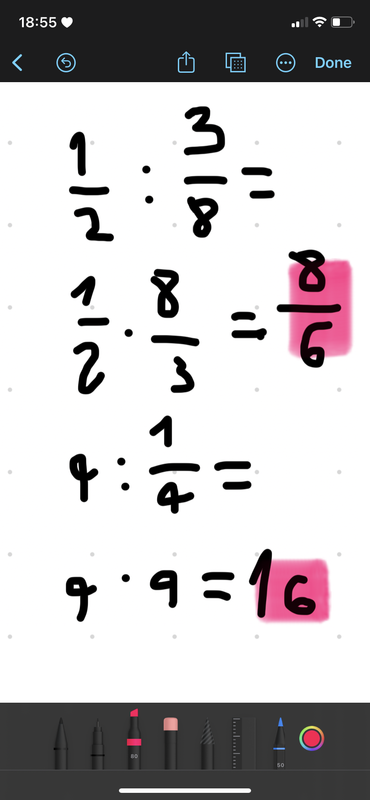 18:55
Done
1/2 : 3/8 =
1/2 · 8/3 = 8/6
4 : 1/4 =
4 · 4 = 16
80
50